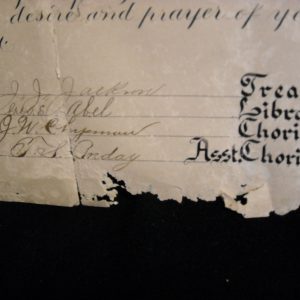 desire and prayer of yo
J. J. Jackson Trea
Abel Libra
J. W. Chapman Chori
Asst. Chori